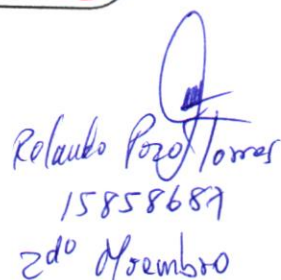 Rolando Pozo Torres
15858687
2do Miembro